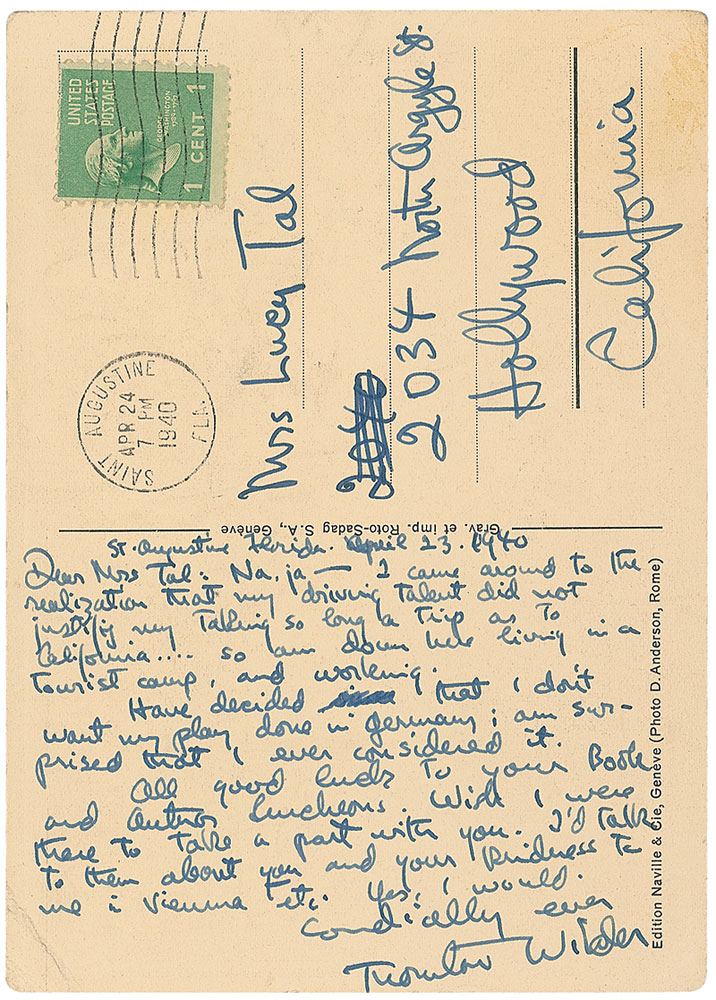 UNITED
STATES
POSTAGE
GEORGE
WASHINGTON
1789-1797
1 CENT 1
SAINT AUGUSTINE
APR 24
7 PM
1940
FLA.
Mrs Lucy Tal
2034 North Argyle St.
Hollywood
California
Grav. et imp. Roto-Sadag S. A., Genève
Edition Naville & Cie, Genève (Photo D. Anderson, Rome)
St. Augustine Florida. April 23. 1940
Dear Mrs Tal: Na, ja — I came around to the
realization that my driving talent did not
justify my taking so long a trip as to
California.... so am down here living in a
tourist camp, and working.
Have decided that I don't
want my play done in Germany; am sur-
prised that I ever considered it.
All good luck to your Book
and Author Luncheons. Wish I were
there to take a part with you. I'd talk
to them about you and your kindness to
me i Vienna etc. Yes, I would.
Cordially ever
Thornton Wilder